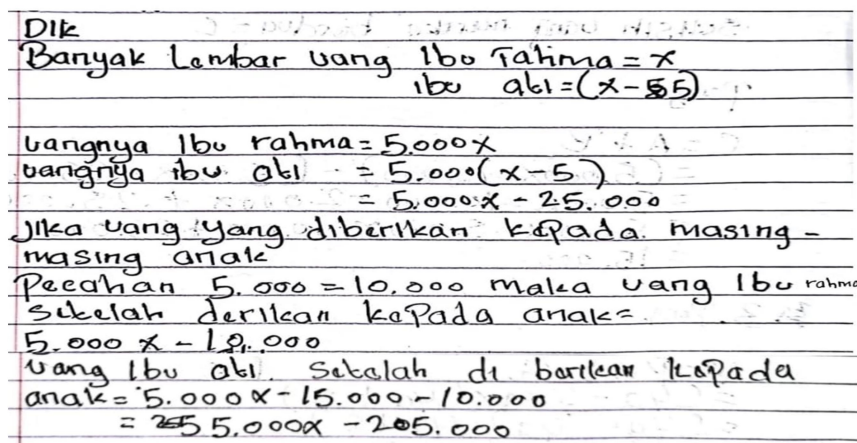 Dik
Banyak Lembar uang Ibu Tahma = x
ibu abi = (x-5)
uangnya Ibu rahma = 5.000x
uangnya ibu abi = 5.000(x-5)
= 5.000x - 25.000
Jika uang yang diberikan kepada masing-
masing anak
Pecahan 5.000 = 10.000 maka uang Ibu rahma
Setelah derikan kepada anak =
5.000 x - 10.000
uang Ibu abi Setalah di barikan kepada
anak = 5.000x - 15.000 - 10.000
= 5.000x - 205.000